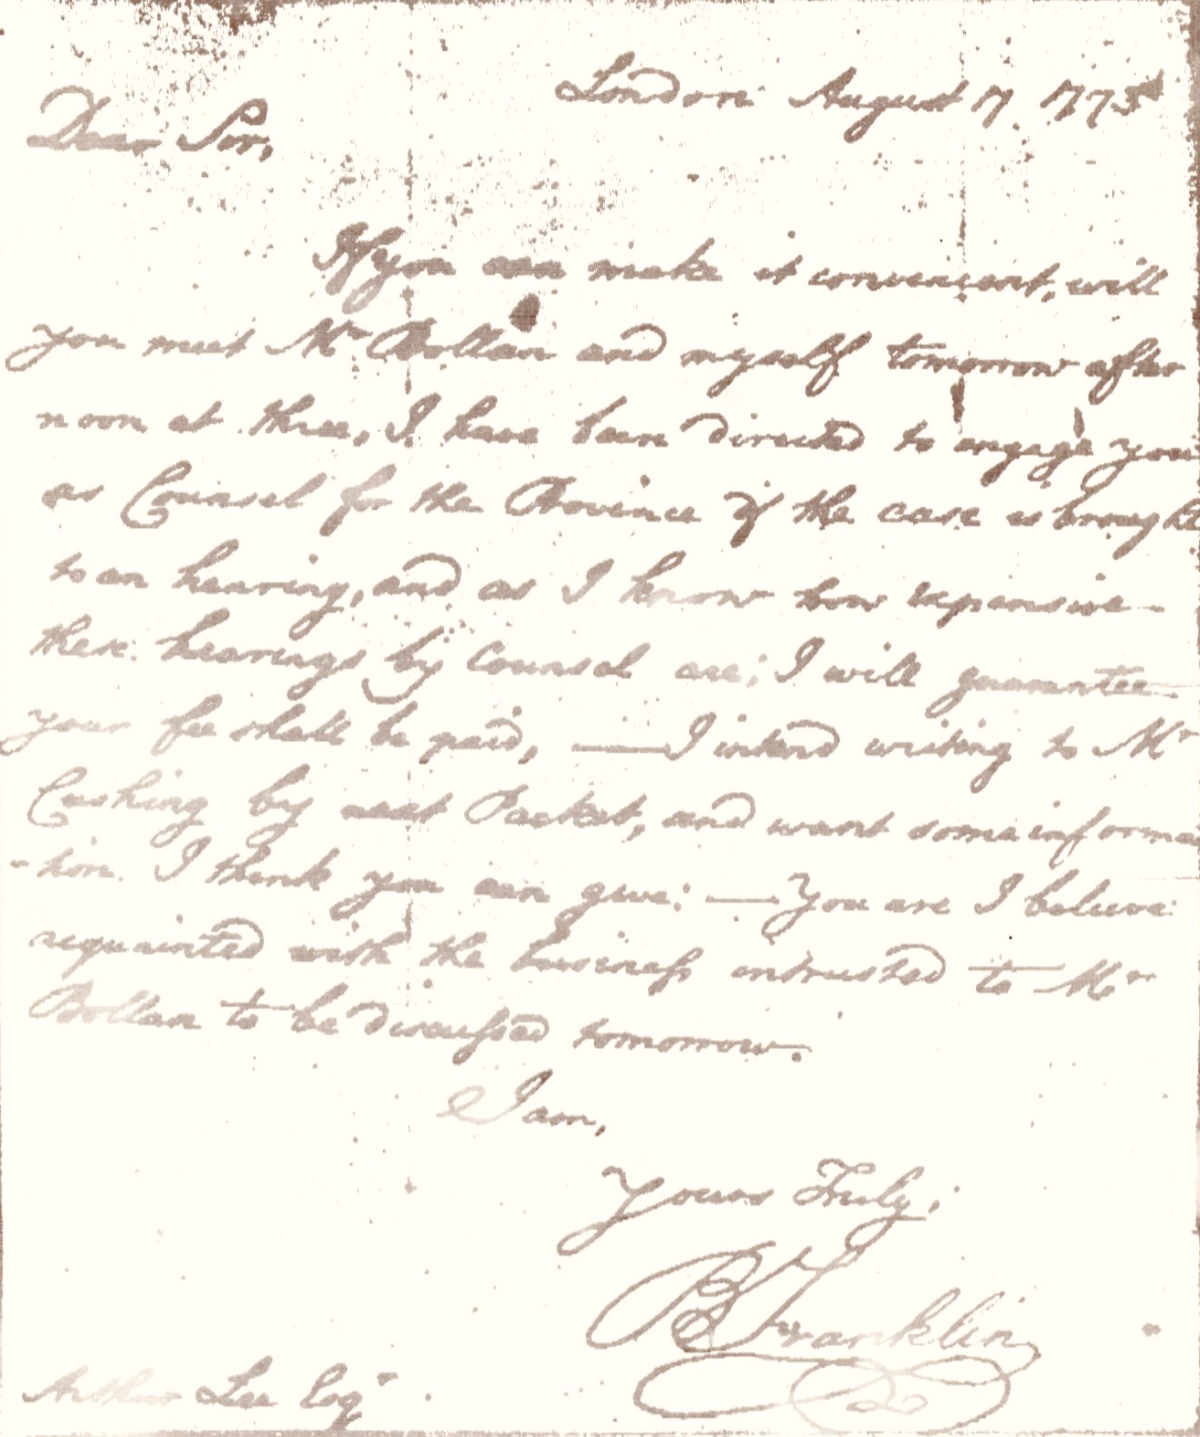 London August 7. 1773
Dear Sir,
If you can make it convenient, will
you meet Mr Bollan and myself tomorrow after
noon at three, I have been directed to engage you
as Counsel for the Province if the case is brought
to an hearing, and as I know how expensive
these hearings by Counsel are; I will guarantee
your fee shall be paid, — I intend writing to Mr
Cushing by next Packet, and want some informa
-tion I think you can give: — You are I believe
acquainted with the business intrusted to Mr
Bollan to be discussed tomorrow.
I am,
Yours Truly,
B Franklin
Arthur Lee Esqr